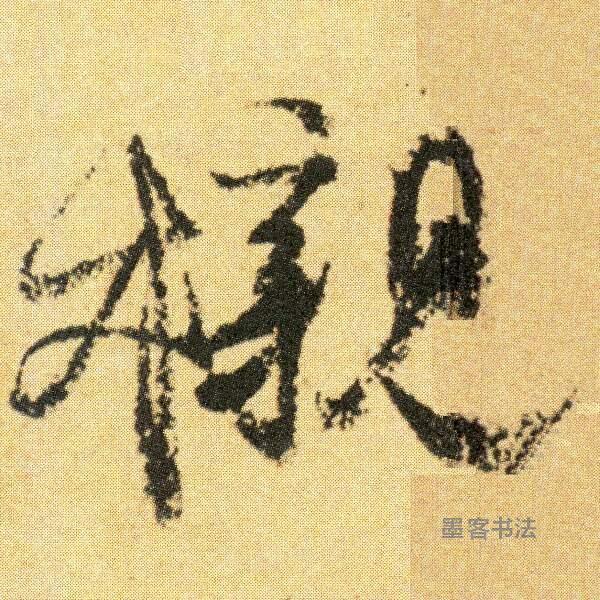 櫬
墨客书法